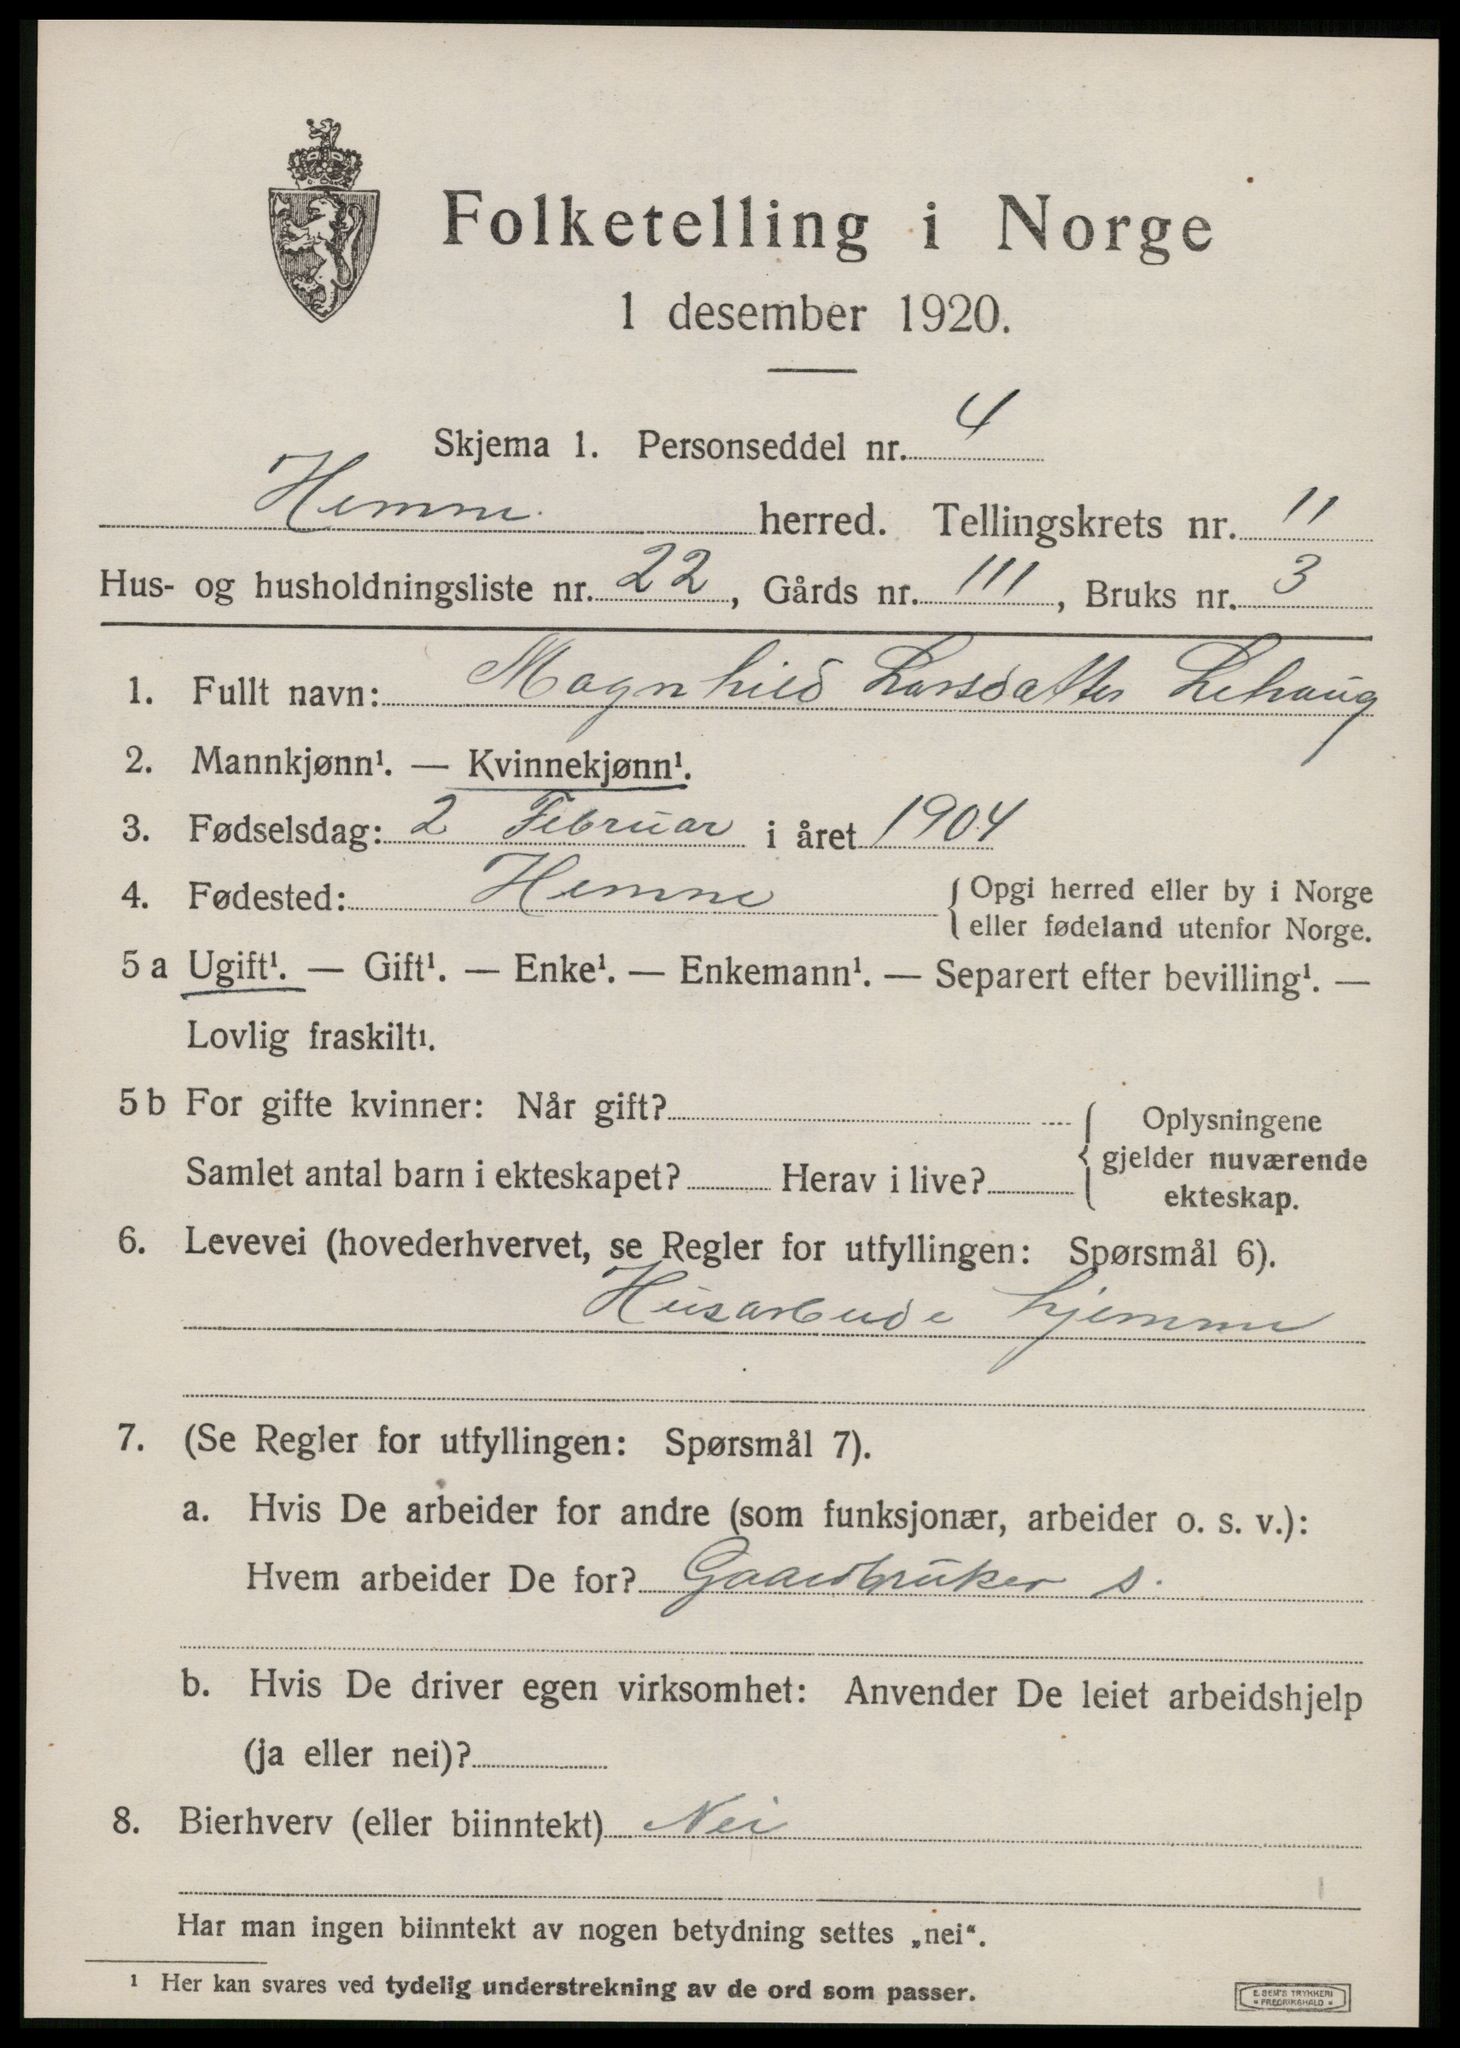 Folketelling i Norge
1 desember 1920.
Skjema 1. Personseddel nr. 4
Hemne herred. Tellingskrets nr. 11
Hus- og husholdningsliste nr. 22, Gårds nr. 111, Bruks nr. 3
1. Fullt navn: Magnhild Larsdatter Lehaug
2. Mannkjønn¹. — Kvinnekjønn¹.
3. Fødselsdag: 2 Februar i året 1904
4. Fødested: Hemne { Opgi herred eller by i Norge
eller fødeland utenfor Norge.
5 a Ugift¹. — Gift¹. — Enke¹. — Enkemann¹. — Separert efter bevilling¹. —
Lovlig fraskilt¹.
5 b For gifte kvinner: Når gift? { Oplysningene
gjelder nuværende
Samlet antal barn i ekteskapet? Herav i live?
ekteskap.
6. Levevei (hovederhvervet, se Regler for utfyllingen: Spørsmål 6).
Husarbeide hjemme
7. (Se Regler for utfyllingen: Spørsmål 7).
a. Hvis De arbeider for andre (som funksjonær, arbeider o. s. v.):
Hvem arbeider De for? Gaardbruker s.
b. Hvis De driver egen virksomhet: Anvender De leiet arbeidshjelp
(ja eller nei)?
8. Bierhverv (eller biinntekt) Nei
Har man ingen biinntekt av nogen betydning settes „nei“.
¹ Her kan svares ved tydelig understrekning av de ord som passer.
E. SEM'S TRYKKERI
* FREDRIKSHALD *